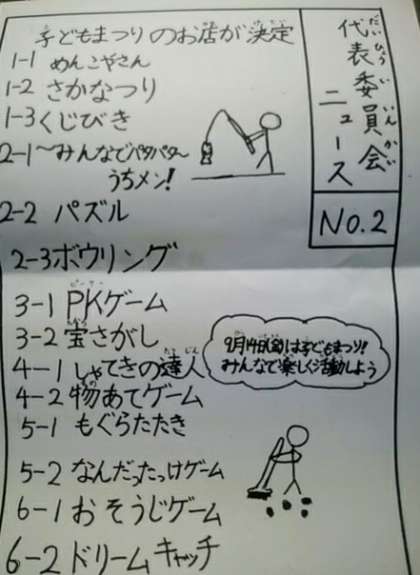 代表委員会
だいひょういいんかい
ニュース
No.2
子どもまつりのお店が決定
1-1 めんこやさん
1-2 さかなつり
1-3 くじびき
2-1 〜みんなでパタパタ〜
うちメン!
2-2 パズル
2-3 ボウリング
3-1 PKゲーム
ピーケー
3-2 宝さがし
4-1 しゃてきの達人
たつじん
4-2 物あてゲーム
もの
5-1 もぐらたたき
5-2 なんだったっけゲーム
6-1 おそうじゲーム
6-2 ドリームキャッチ
9月14日(金)は子どもまつり!
みんなで楽しく活動しよう